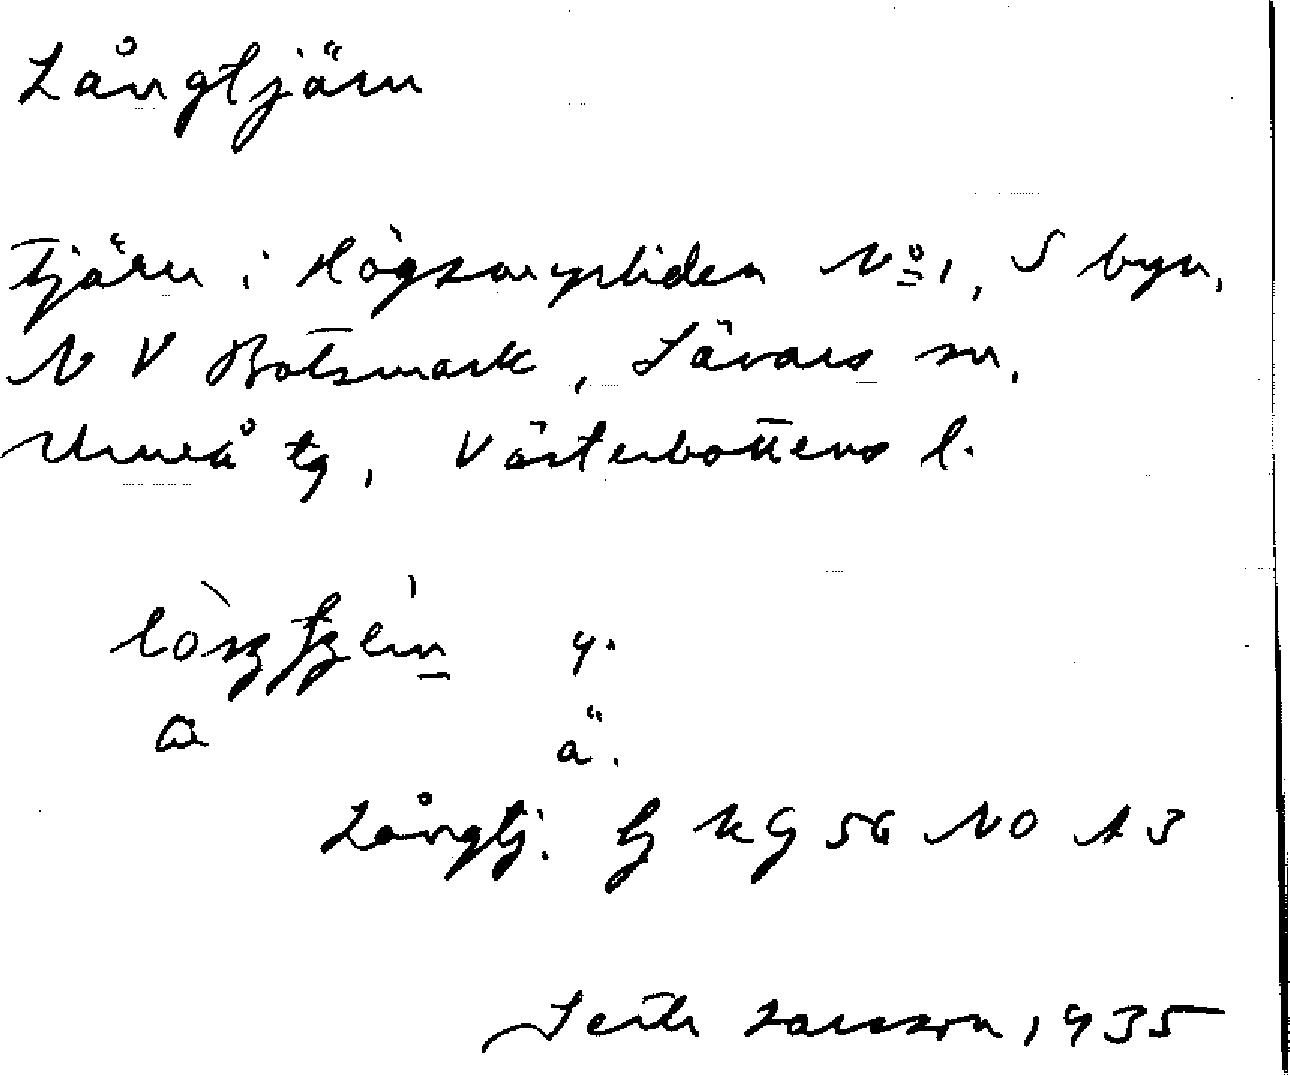 Långtjärn
Tjärn i Högsamyrliden No 1, S byn,
N V Botsmark, Sävars sn,
Umeå tg, Västerbottens l.
y.
ä.
Långtj. G K G 56 NO A 3
Seth Larsson, 1935